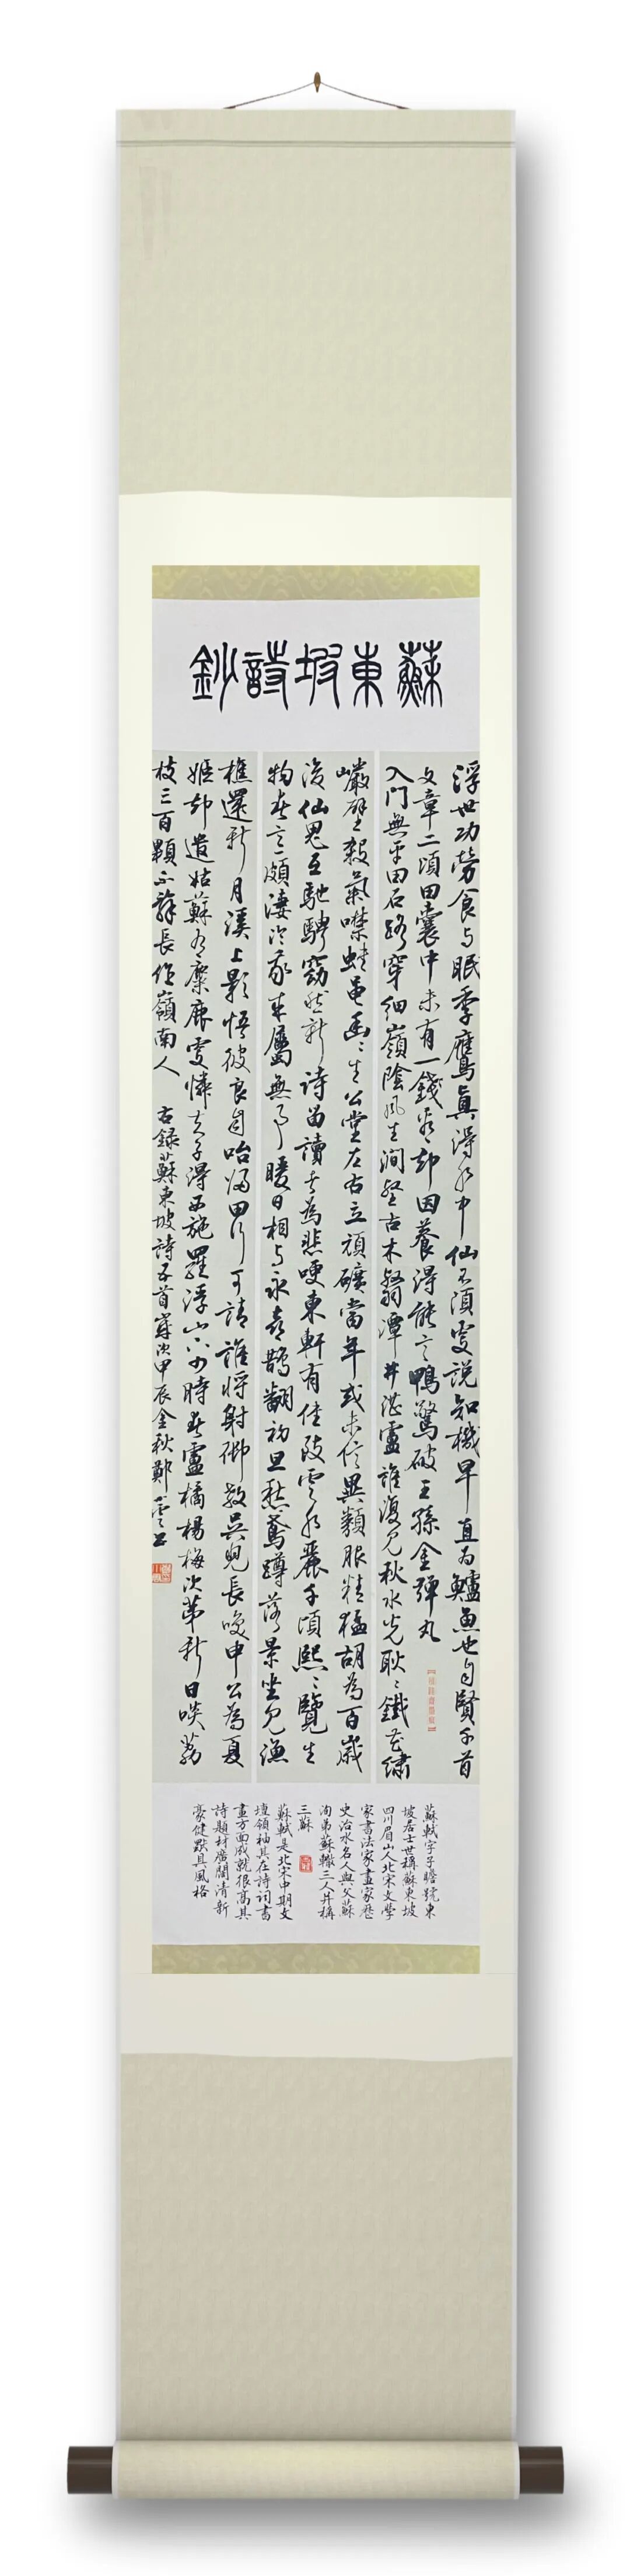 蘇東坡詩鈔
浮世功勞食与眠季鷹真得水中仙不須更說知機早直為鱸魚也自賢千首
文章二頃田囊中未有一錢看却因養得能言鴨驚破王孫金彈丸
入門無平田石路穿細嶺陰風生澗壑古木翳潭井湛盧誰復見秋水光耿〻鐵花繡
巖壁殺氣噤蛙黽幽〻生公堂左右立頑礦當年或未信異類服精猛胡為百歲
後仙鬼互馳騁窈然新詩留讀者為悲哽東軒有佳致雲水麗千頃熙〻覽生
物春意頗淒冷我來屬無事暖日相与永喜鵲翻初旦愁鳶蹲落景坐見漁
樵還新月溪上影悟彼良自咍歸田行可請誰將射御教吳兒長笑申公為夏
姬却遣姑蘇有麋鹿更憐夫子得西施羅浮山下四時春盧橘楊梅次第新日啖荔
枝三百顆不辭長作嶺南人 右錄蘇東坡詩五首歲次甲辰金秋鄭雲書
蘇軾字子瞻號東
坡居士世稱蘇東坡
四川眉山人北宋文學
家書法家畫家歷
史治水名人與父蘇
洵弟蘇轍三人并稱
三蘇
蘇軾是北宋中期文
壇領袖其在詩詞書
畫方面成就很高其
詩題材廣闊清新
豪健具風格